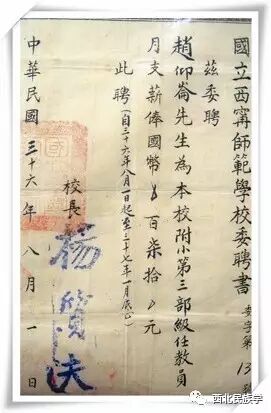 國立西寧師範學校委聘書
委字第13號
茲委聘
趙仰崙先生為本校附小第三部級任教員
月支薪俸國幣 百柒拾 元
（自三十六年八月一日起至三十七年一月底止）
此聘
校長 楊
中華民國三十六年八月一日
西北民族学